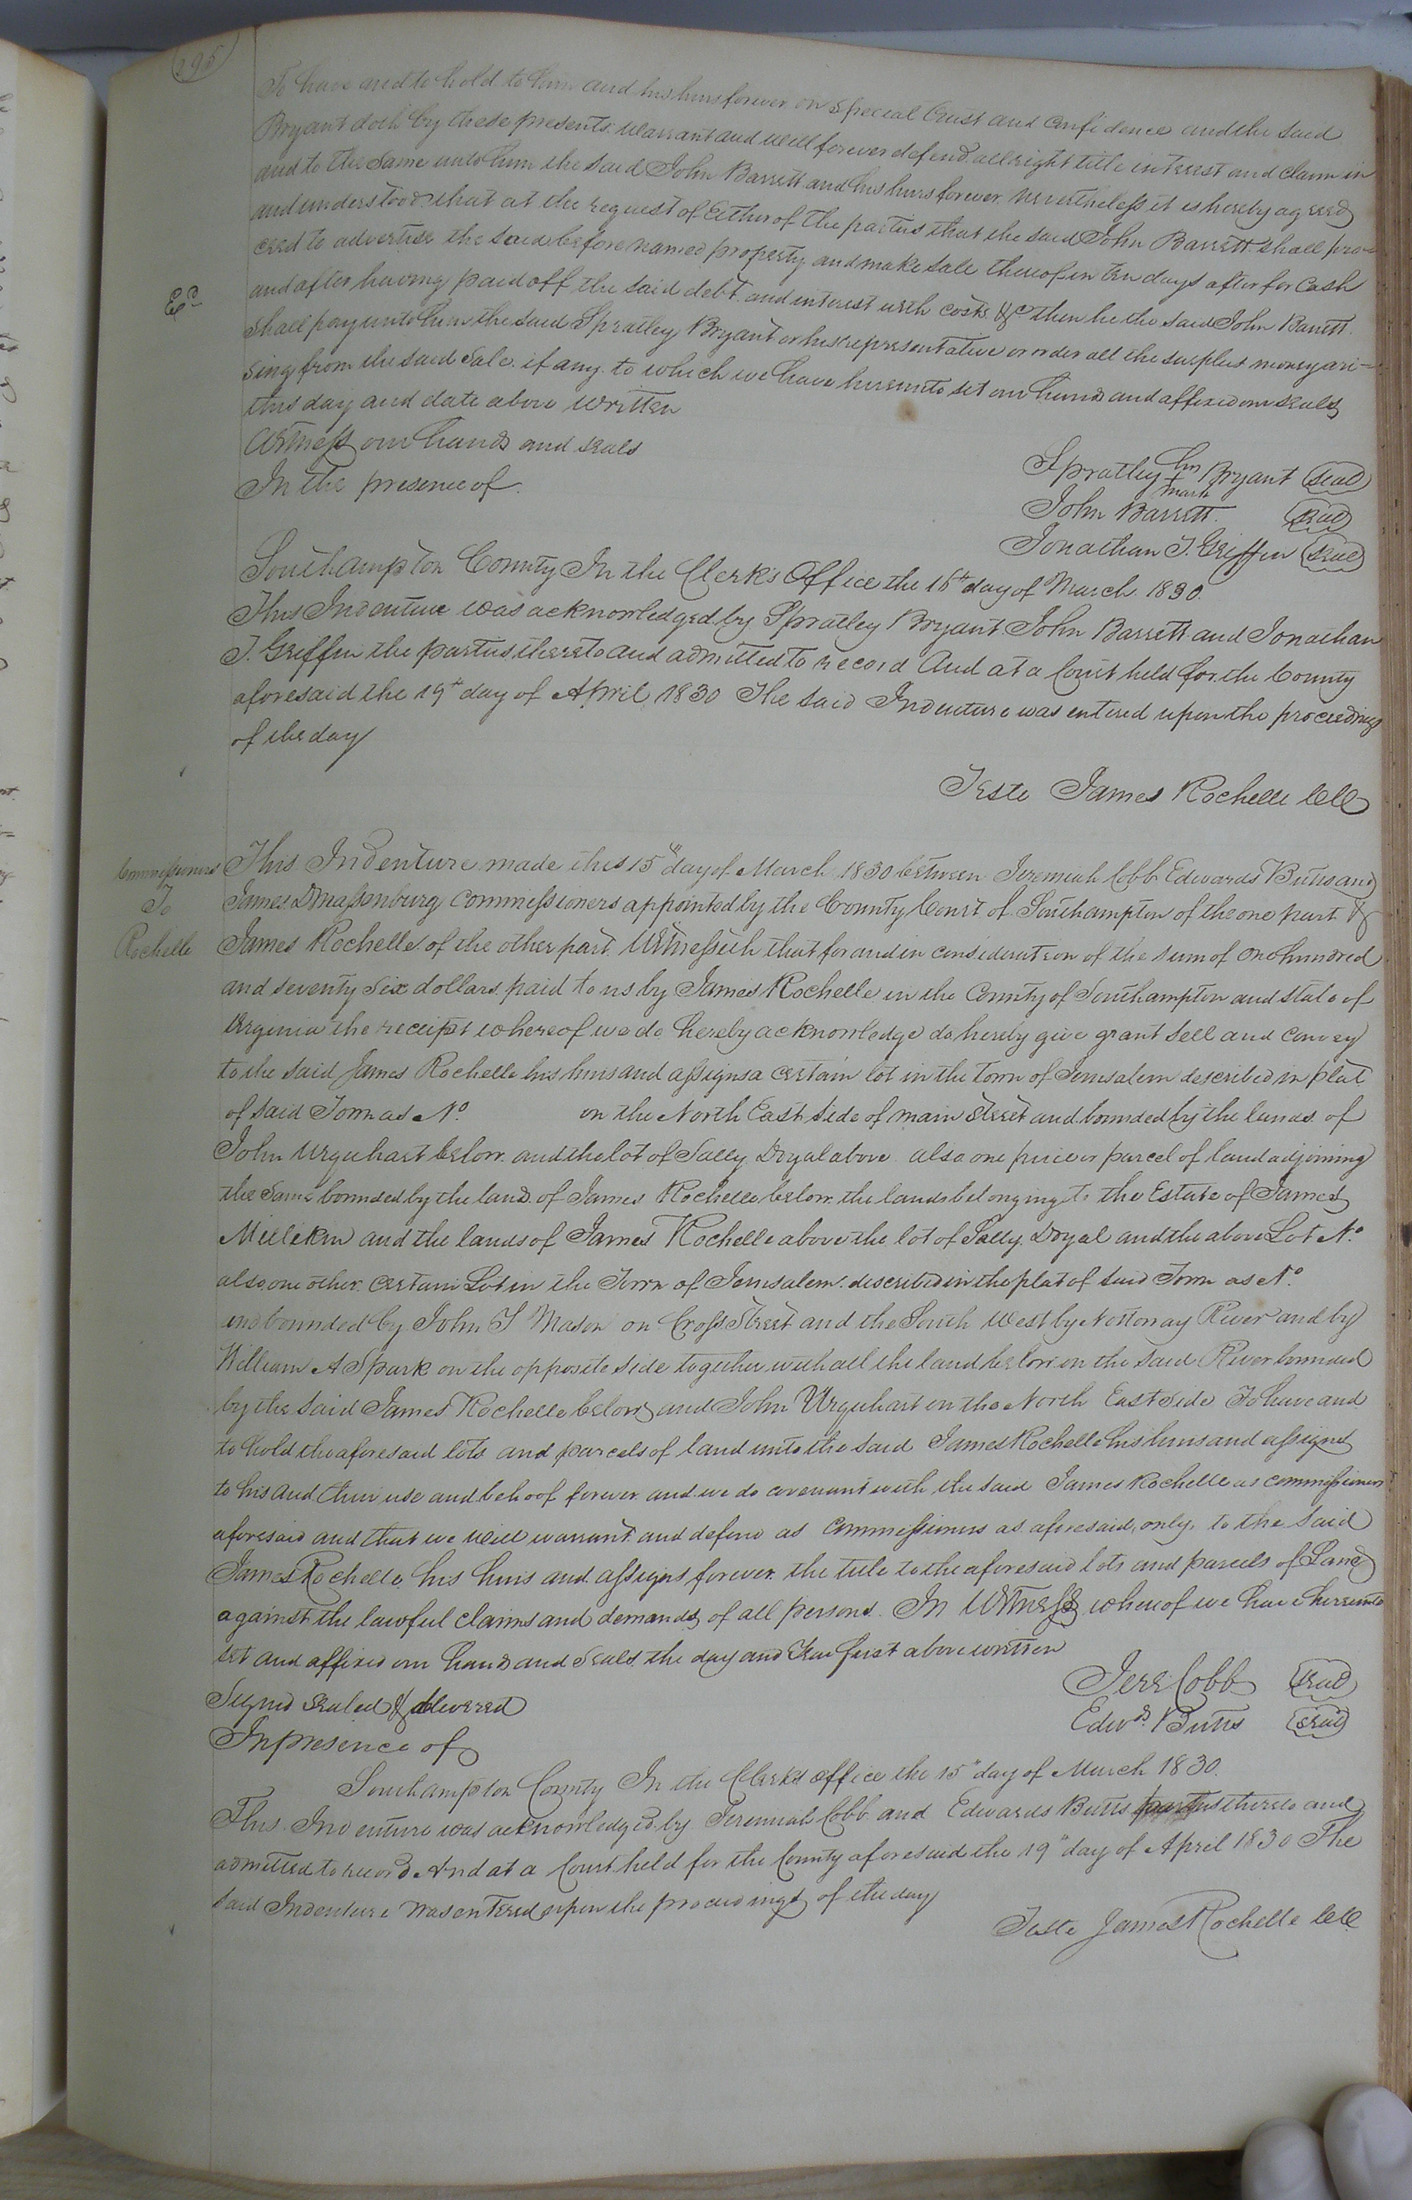 296
To have and to hold to him and his heirs forever on special trust and confidence and the said
Bryant doth by these presents warrant and will forever defend all right title interest and claim in
and to the same unto him the said John Barrett and his heirs forever nevertheless it is hereby agreed
and understood that at the request of Either of the parties that the said John Barrett shall pro=
ceed to advertise the said before named property and make sale thereof in ten days after for Cash
and after having paid off the said debt and interest with costs &c then he the said John Barrett
Ex.d
shall pay unto him the said Spratley Bryant or his representative or order all the surplus money ari=
sing from the said Sale if any to which we have hereunto set our hands and affixed our seals
this day and date above written
Witness our hands and seals
In the presence of
Spratley his + mark Bryant (seal)
John Barrett (seal)
Jonathan T. Griffin (seal)
Southampton County In the Clerk's Office the 16th day of March 1830
This Indenture was acknowledged by Spratley Bryant John Barrett and Jonathan
T. Griffin the parties thereto and admitted to record And at a Court held for the County
aforesaid the 19th day of April 1830 The said Indenture was entered upon the proceedings
of the day
Teste James Rochelle CC
Commissioners
To
Rochelle
This Indenture made this 15" day of March 1830 between Jeremiah Cobb Edwards Butts and
James D Massenburg Commissioners appointed by the County Court of Southampton of the one part &
James Rochelle of the other part Witnesseth that for and in consideration of the sum of One hundred
and seventy Six dollars paid to us by James Rochelle in the County of Southampton and state of
Virginia the receipt whereof we do hereby acknowledge do hereby give grant sell and convey
to the said James Rochelle his heirs and assigns a certain lot in the Town of Jerusalem described in plat
of said Town as No on the North East Side of main Street and bounded by the lands of
John Urquhart below and the lot of Sally Doyal above also one piece or parcel of land adjoining
the same bounded by the land of James Rochelle below the lands belonging to the Estate of James
Millikin and the lands of James Rochelle above the lot of Sally Doyal and the above Lot No.
also one other certain Lot in the Town of Jerusalem described in the plat of said Town as No.
and bounded by John T Mason on Cross Street and the South West by Nottoway River and by
William A Spark on the opposite side together with all the land below on the said River bounded
by the said James Rochelle below and John Urquhart on the North East Side To have and
to hold the aforesaid lots and parcels of land unto the said James Rochelle his heirs and assigns
to his and their use and behoof forever and we do covenant with the said James Rochelle as commissioners
aforesaid and that we will warrant and defend as Commissioners as aforesaid only to the said
James Rochelle his heirs and assigns forever the title to the aforesaid lots and parcels of Land
against the lawful claims and demands of all persons. In Witness whereof we have hereunto
set and affixed our hands and Seals the day and Year first above written
Signed sealed & delivered
In presence of
Jere Cobb (seal)
Edwds. Butts (seal)
Southampton County In the Clerks office the 15" day of March 1830.
This Indenture was acknowledged by Jeremiah Cobb and Edwards Butts parties thereto and
admitted to record And at a Court held for the County aforesaid the 19" day of April 1830 The
said Indenture was entered upon the proceedings of the day
Teste James Rochelle CC